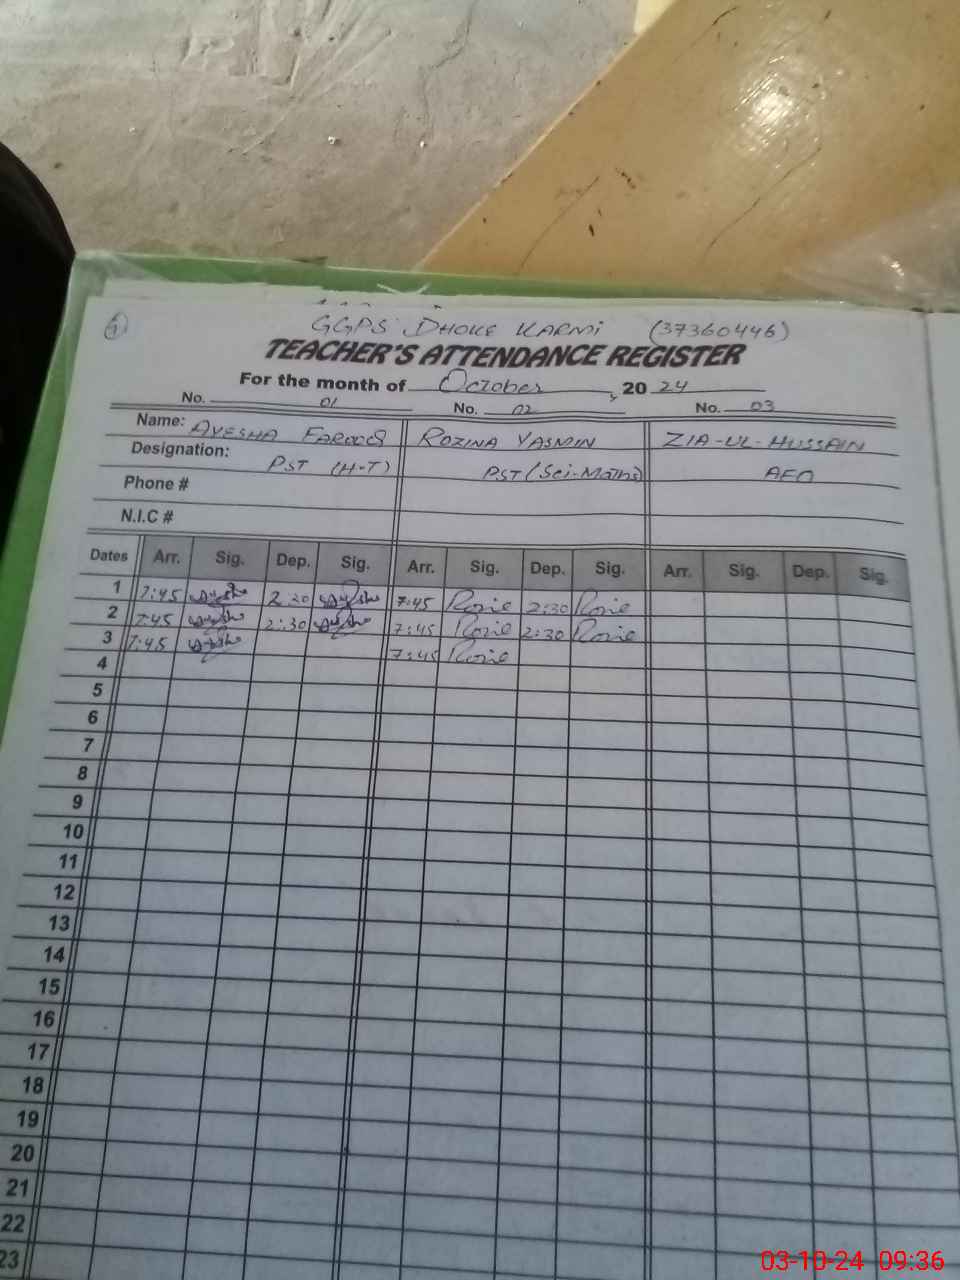 GGPS DHOKE KARMI (37360446)
TEACHER'S ATTENDANCE REGISTER
For the month of October, 2024
No. 01 No. 02 No. 03
Name: AYESHA FAROOQ ROZINA YASMIN ZIA-UL-HUSSAIN
Designation: PST (H-T) PST (Sci-Maths) AEO
Phone #
N.I.C #
Dates Arr. Sig. Dep. Sig. Arr. Sig. Dep. Sig. Arr. Sig. Dep. Sig.
1 7:45 2:30 7:45 Rozie 2:30 Rozie
2 7:45 2:30 7:45 Rozie 2:30 Rozie
3 7:45 7:45 Rozie
4
5
6
7
8
9
10
11
12
13
14
15
16
17
18
19
20
21
22
23
03-10-24 09:36